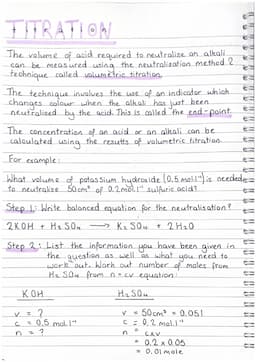 TITRATION
The volume of acid required to neutralize an alkali
can be measured using the neutralization method &
technique called volumetric titration.
The technique involves the use of an indicator which
changes colour when the alkali has just been
neutralised by the acid. This is called the end-point.
The concentration of an acid or an alkali can be
calculated using the results of volumetric titration.
For example:
What volume of potassium hydroxide (0.5 mol l⁻¹) is needed
to neutralize 50cm³ of 0.2 mol l⁻¹ sulfuric acid?
Step 1: Write balanced equation for the neutralisation?
2KOH + H₂SO₄ → K₂SO₄ + 2H₂O
Step 2: List the information you have been given in
the question as well as what you need to
work out. Work out number of moles from
H₂SO₄ from n=cv equation:
KOH H₂SO₄
v = ? v = 50cm³ = 0.05l
c = 0.5 mol l⁻¹ c = 0.2 mol l⁻¹
n = ? n = cxv
= 0.2 x 0.05
= 0.01 mole